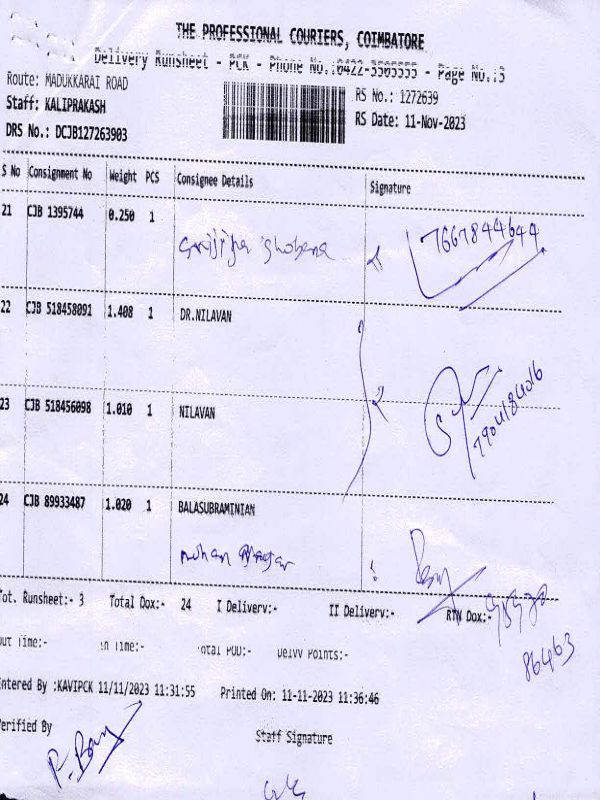 THE PROFESSIONAL COURIERS, COIMBATORE
Delivery Runsheet - PCK - Phone No.:0422-3505555 - Page No.:3
Route: MADUKKARAI ROAD
RS No.: 1272639
Staff: KALIPRAKASH
RS Date: 11-Nov-2023
DRS No.: DCJB127263903
S No Consignment No Weight PCS Consignee Details Signature
21 CJB 1395744 0.250 1
Shobana 7667844644
22 CJB 518458091 1.408 1 DR.NILAVAN
23 CJB 518456098 1.010 1 NILAVAN
7904184016
24 CJB 89933487 1.020 1 BALASUBRAMINIAN
mohan
Tot. Runsheet:- 3 Total Dox:- 24 I Delivery:- II Delivery:- RTN Dox:-
86463
Out Time:- In Time:- Total POD:- Delvy Points:-
Entered By :KAVIPCK 11/11/2023 11:31:55 Printed On: 11-11-2023 11:36:46
Verified By
Staff Signature